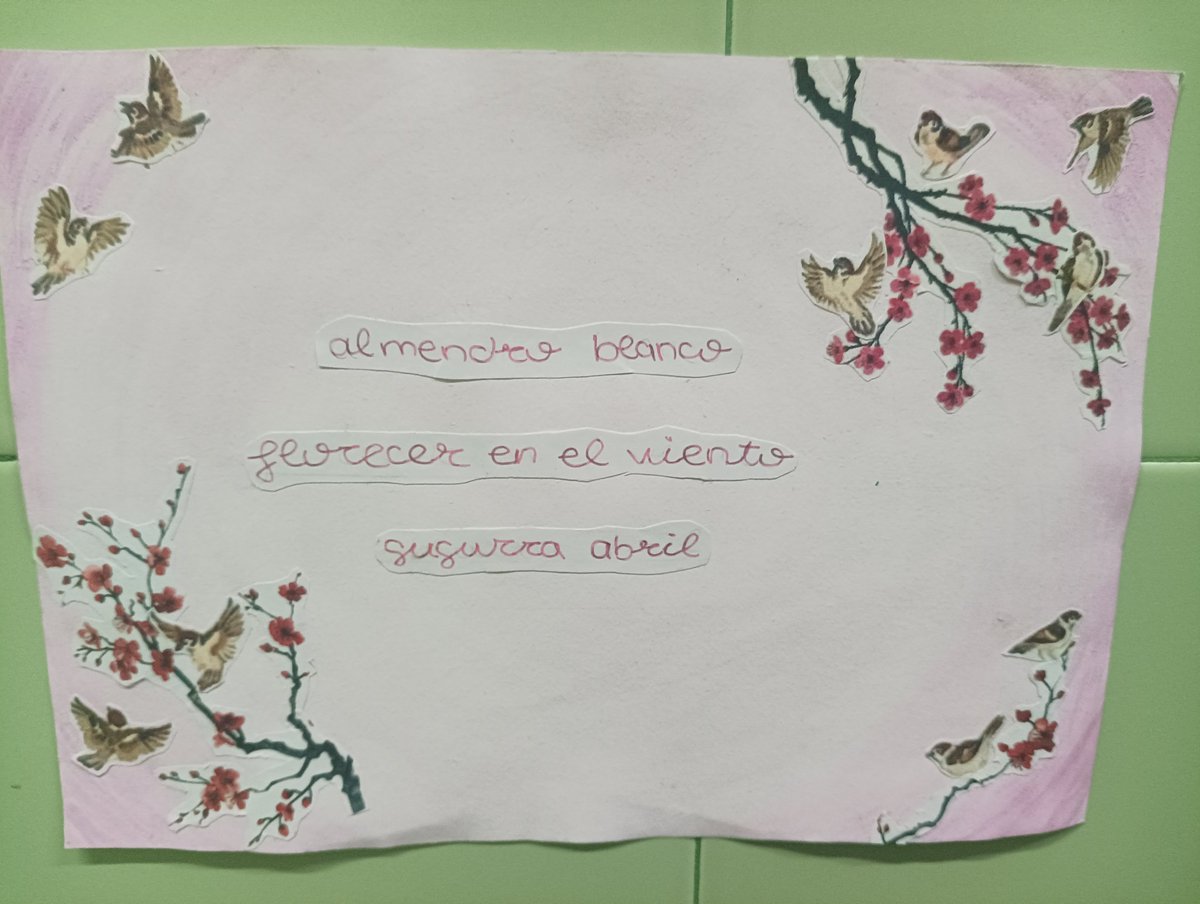 almendro blanco
florecer en el viento
susurra abril